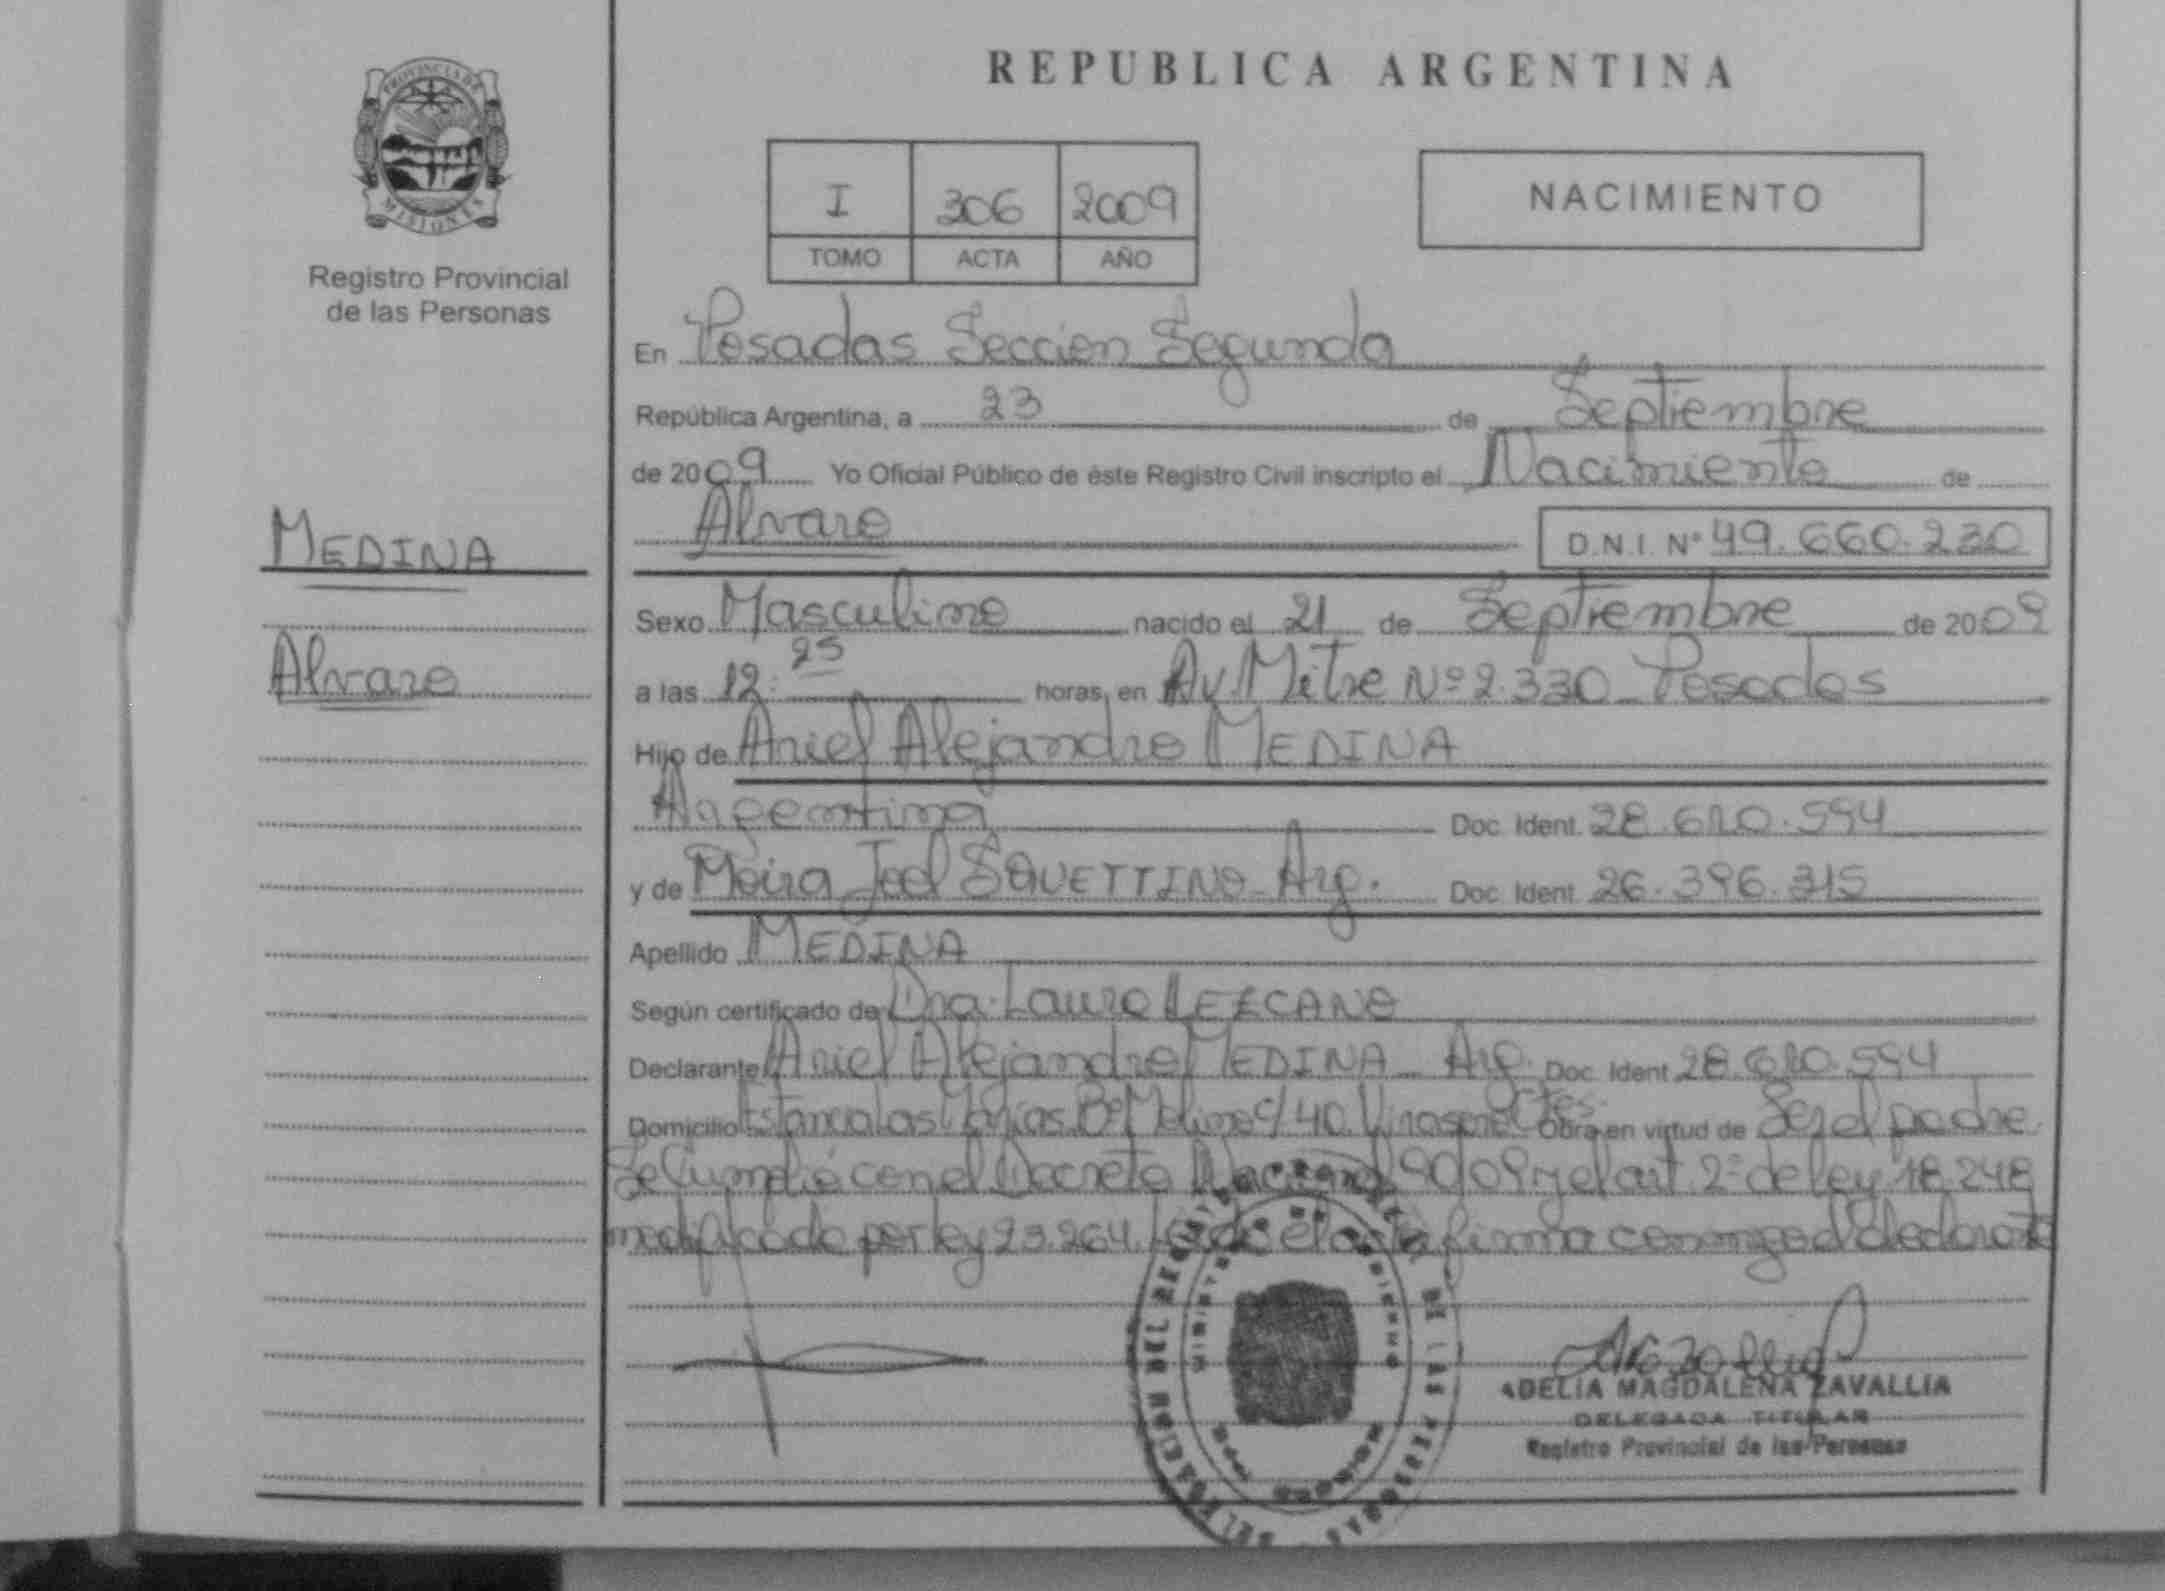 REPUBLICA ARGENTINA
PROVINCIA DE
MISIONES
Registro Provincial
de las Personas
I 306 2009
TOMO ACTA AÑO
NACIMIENTO
MEDINA
Alvaro
En Posadas Sección Segunda
República Argentina, a 23 de Septiembre
de 2009 Yo Oficial Público de éste Registro Civil inscripto el Nacimiento de
Alvaro D.N.I. Nº 49.660.230
Sexo Masculino nacido el 21 de Septiembre de 2009
a las 12:25 horas, en Av. Mitre Nº 2.330 Posadas
Hijo de Ariel Alejandro MEDINA
Argentina Doc. Ident. 28.610.594
y de Moira Joel SQUETTINO Arg. Doc. Ident. 26.396.315
Apellido MEDINA
Según certificado de Dra. Laura LEZCANO
Declarante Ariel Alejandro MEDINA Arg. Doc. Ident. 28.610.594
Domicilio Estancia Las Bº c/ 40 Ctes. Obra en virtud de Ser el padre
Se Cumplió con el Decreto Nacional 90/09 y el art. 2º de ley 18.248
modificado por ley 23.264. el acta firma conmigo el declarante
MINISTERIO DE GOBIERNO
DEL REGISTRO DE LAS PERSONAS
ADELIA MAGDALENA ZAVALLIA
DELEGADA TITULAR
Registro Provincial de las Personas